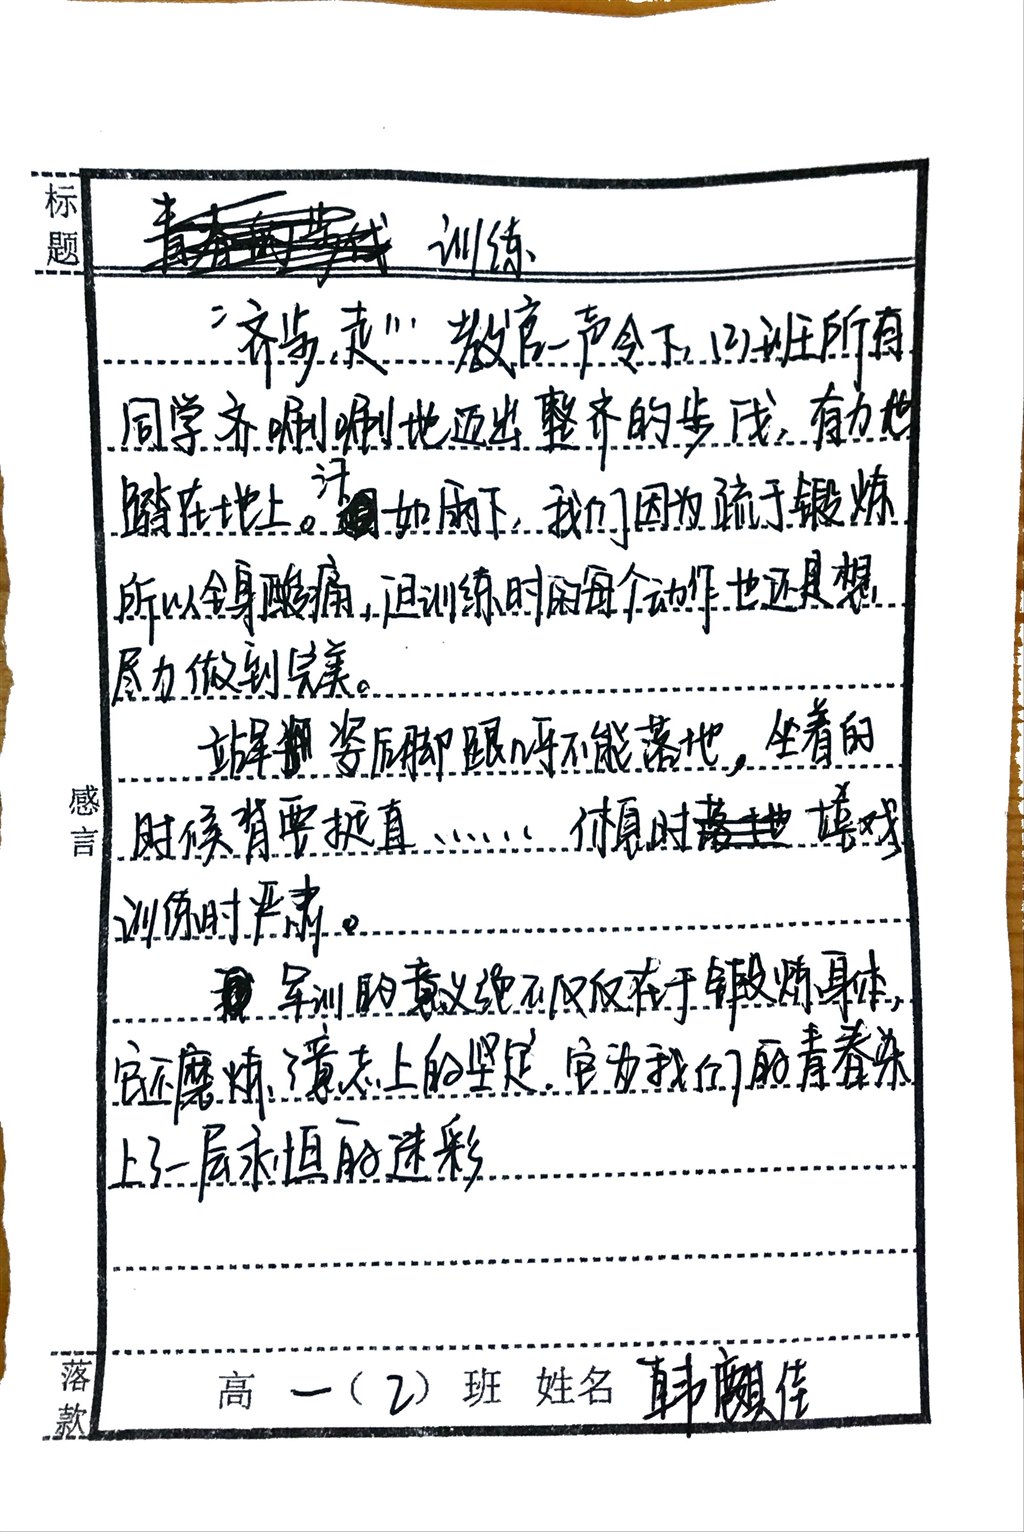 标题
训练
“齐步,走!”教官一声令下,(2)班所有
同学齐唰唰地迈出整齐的步伐,有力地
踏在地上。汗如雨下,我们因为疏于锻炼
所以全身酸痛,但训练时的每个动作也还是想
尽力做到完美。
站军姿后脚跟呀不能落地,坐着的
时候背要挺直…… 休息时嬉戏
训练时严肃。
军训的意义绝不仅仅在于锻炼身体,
它还磨炼了意志上的坚定.它为我们的青春染
上了一层永恒的迷彩
感言
落款
高一(2)班 姓名 韩麒佳